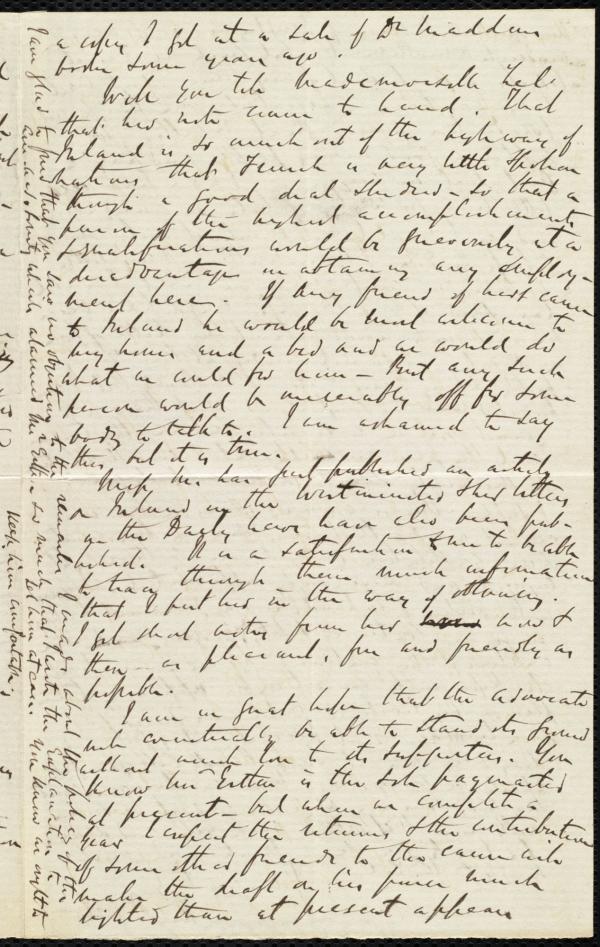 a copy I got at a sale of Dr. Madden's
books some years ago.
Will you tell Mademoiselle
that has not come to hand. That
Ireland is so much out of the highway of
nations that French is very little spoken
though a good deal studied - so that a
person of the highest accomplishments
& qualifications would be grievously at a
disadvantage in obtaining any employ-
ment here. If any friend of hers came
to Ireland he would be most welcome to
my house and a bed and we would do
what we could for him - But any such
person would be miserably off for some
body to talk to. I am ashamed to say
this but it is true.
has just published an article
on Ireland in the Westminster & her letters
in the Daily News have also been pub-
lished. It is a satisfaction to me to be able
to trace through them much information
that I put her in the way of obtaining.
I get short notes from her now &
then - as pleasant, free and friendly as
possible.
I am in great hopes that the Advocate
will eventually be able to stand its ground
without much loss to its supporters. You
know Mr. Estlin is the sole paymaster
at present - but when we complete a
year I expect the returns & the contributions
of some other friends to the cause will
make the draft on his purse much
lighter than at present appears
I am glad to find that you saw no objection to the remarks I made about the policy of the
which alarmed Mr. Estlin so much that I wrote the explanation to
at once. You know we ought to
keep him comfortable.